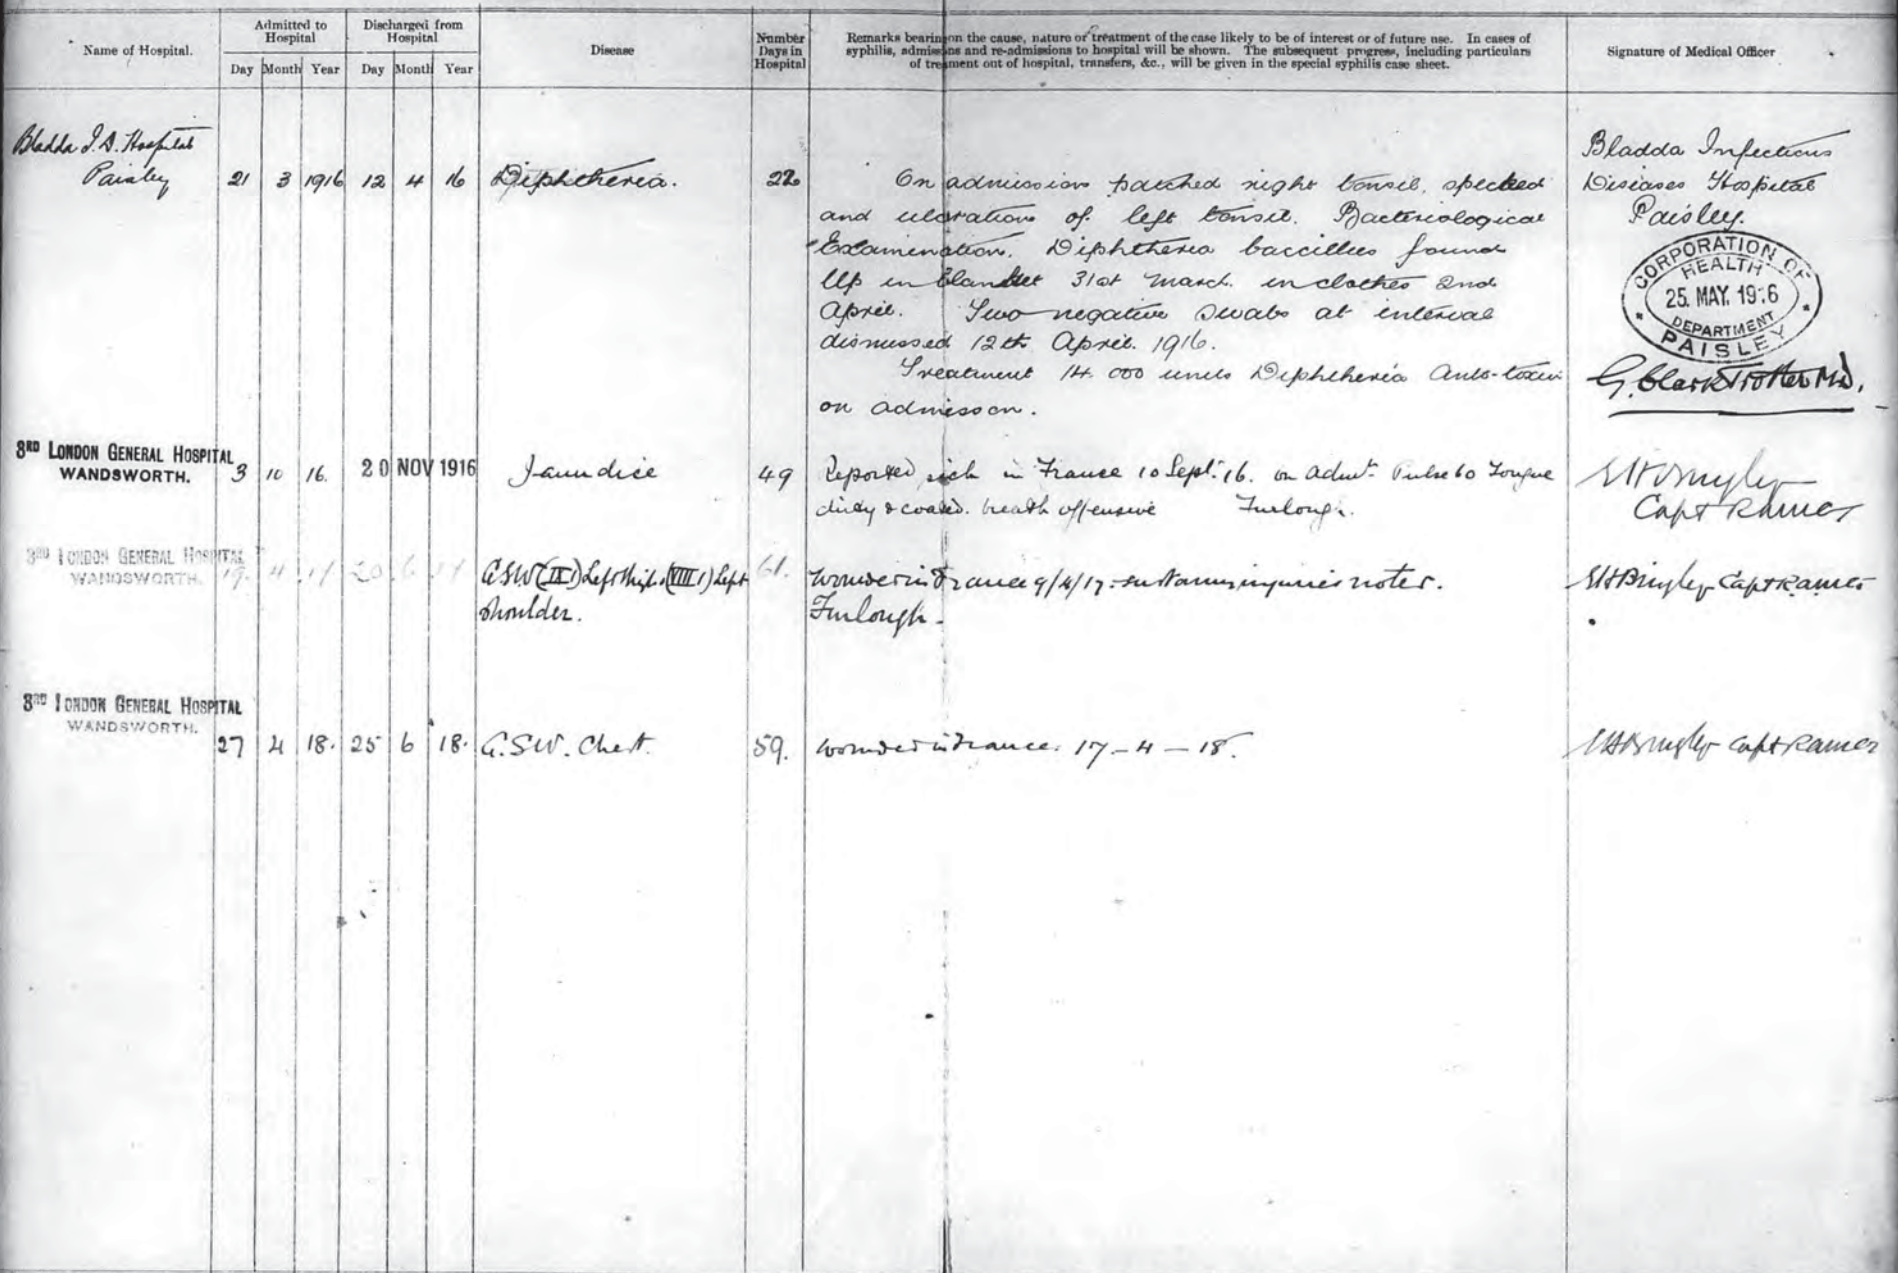 Name of Hospital.
Admitted to
Hospital
Day Month Year
Discharged from
Hospital
Day Month Year
Disease
Number
Days in
Hospital
Remarks bearing on the cause, nature or treatment of the case likely to be of interest or of future use. In cases of
syphilis, admissions and re-admissions to hospital will be shown. The subsequent progress, including particulars
of treatment out of hospital, transfers, &c., will be given in the special syphilis case sheet.
Signature of Medical Officer
Bladda I.D. Hospital
Paisley 21 3 1916 12 4 16 Diphtheria. 22
On admission patched right tonsil, specked
and ulcration of left tonsil. Bacteriological
Examination. Diphtheria baccillus found
Up in blanket 31st March. in clothes 2nd
April. Two negative swabs at interval
dismissed 12th April. 1916.
Treatment 14.000 units Diphtheria Anto-toxin
on admisson.
Bladda Infectious
Diseases Hospital
Paisley.
CORPORATION OF
HEALTH
25. MAY. 1916
DEPARTMENT
PAISLEY
G. Clark Trotter MD.
3RD LONDON GENERAL HOSPITAL
WANDSWORTH. 3 10 16. 20 NOV 1916 Jaundice 49
Reported sick in France 10 Sept. 16. on Admt. Pulse 60 Tongue
dirty & coated. breath offensive Furlough.
EHBingley
Capt Ramct
3RD LONDON GENERAL HOSPITAL
WANDSWORTH. 19. 4 17 20 6 17 GSW (IX1) Left thigh (VIII1) Left 61.
shoulder.
Wounded in France 9/4/17. sustaining injuries noted.
Furlough.
EHBingley Capt Ramct
3RD LONDON GENERAL HOSPITAL
WANDSWORTH.
27 4 18. 25 6 18. G.S.W. Chest. 59. Wounded in France. 17-4-18. EHBingley Capt Ramct